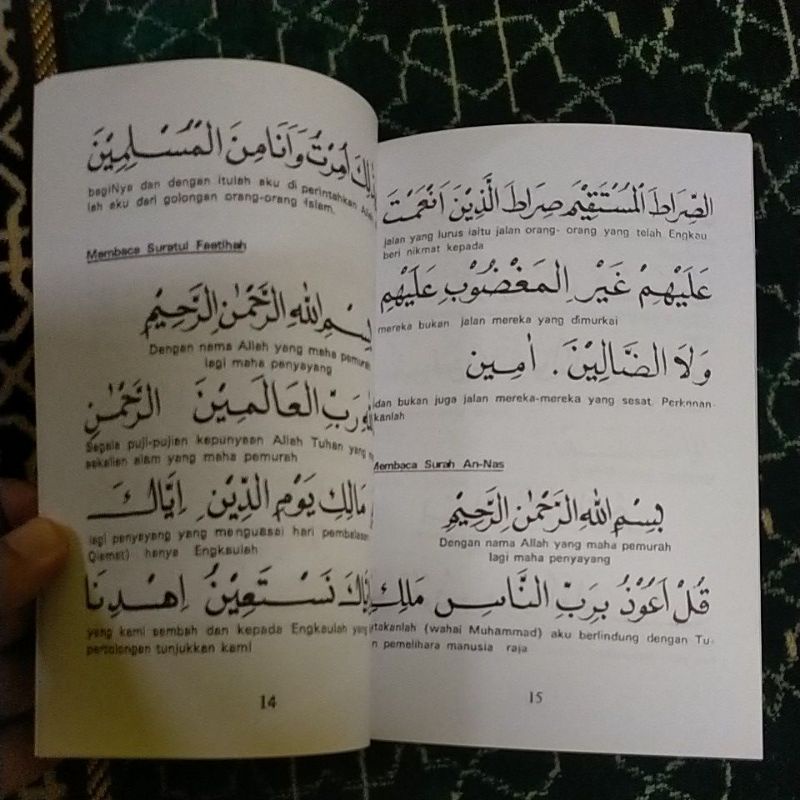 لِكَ أُمِرْتُ وَأَنَا مِنَ الْمُسْلِمِيْنَ
bagiNya dan dengan itulah aku di perintahkan
lah aku dari golongan orang-orang Islam.
Membaca Suratul Faatihah
بِسْمِ اللهِ الرَّحْمٰنِ الرَّحِيْمِ
Dengan nama Allah yang maha pemurah
lagi maha penyayang
رَبِّ الْعَالَمِيْنَ الرَّحْمٰنِ
Segala puji-pujian kepunyaan Allah Tuhan yang
sekalian alam yang maha pemurah
مَالِكِ يَوْمِ الدِّيْنِ اِيَّاكَ
lagi penyayang yang menguasai hari pembalasan
Qiamat) hanya Engkaulah
نَسْتَعِيْنُ اِهْدِنَا
yang kami sembah dan kepada Engkaulah yang
pertolongan tunjukkan kami
14
الصِّرَاطَ الْمُسْتَقِيْمَ صِرَاطَ الَّذِيْنَ اَنْعَمْتَ
jalan yang lurus iaitu jalan orang- orang yang telah Engkau
beri nikmat kepada
عَلَيْهِمْ غَيْرِ الْمَغْضُوْبِ عَلَيْهِمْ
mereka bukan jalan mereka yang dimurkai
وَلَا الضَّالِيْنَ. اٰمِين
dan bukan juga jalan mereka-mereka yang sesat. Perkenan-
kanlah
Membaca Surah An-Nas
بِسْمِ اللهِ الرَّحْمٰنِ الرَّحِيْمِ
Dengan nama Allah yang maha pemurah
lagi maha penyayang
قُلْ اَعُوْذُ بِرَبِّ النَّاسِ مَلِكِ
takanlah (wahai Muhammad) aku berlindung dengan Tu-
n pemelihara manusia raja
15